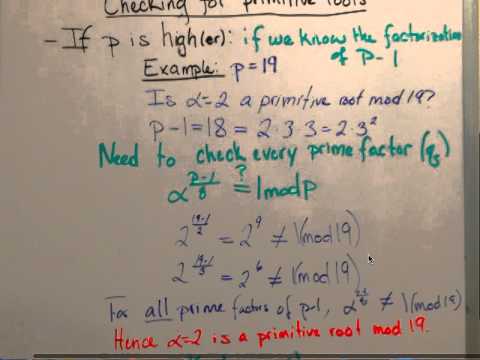 Checking for primitive roots
- If p is high(er): if we know the factorization
of P-1
Example: p=19
Is α=2 a primitive root mod 19?
p-1=18 = 2·3·3=2·3²
Need to check every prime factor (qs)
α^((p-1)/q) ?= 1 mod p
2^((19-1)/2) = 2^9 ≠ 1(mod 19)
2^((19-1)/3) = 2^6 ≠ 1(mod 19)
For all prime factors of p-1, α^((p-1)/q) ≠ 1(mod 19).
Hence α=2 is a primitive root mod 19.